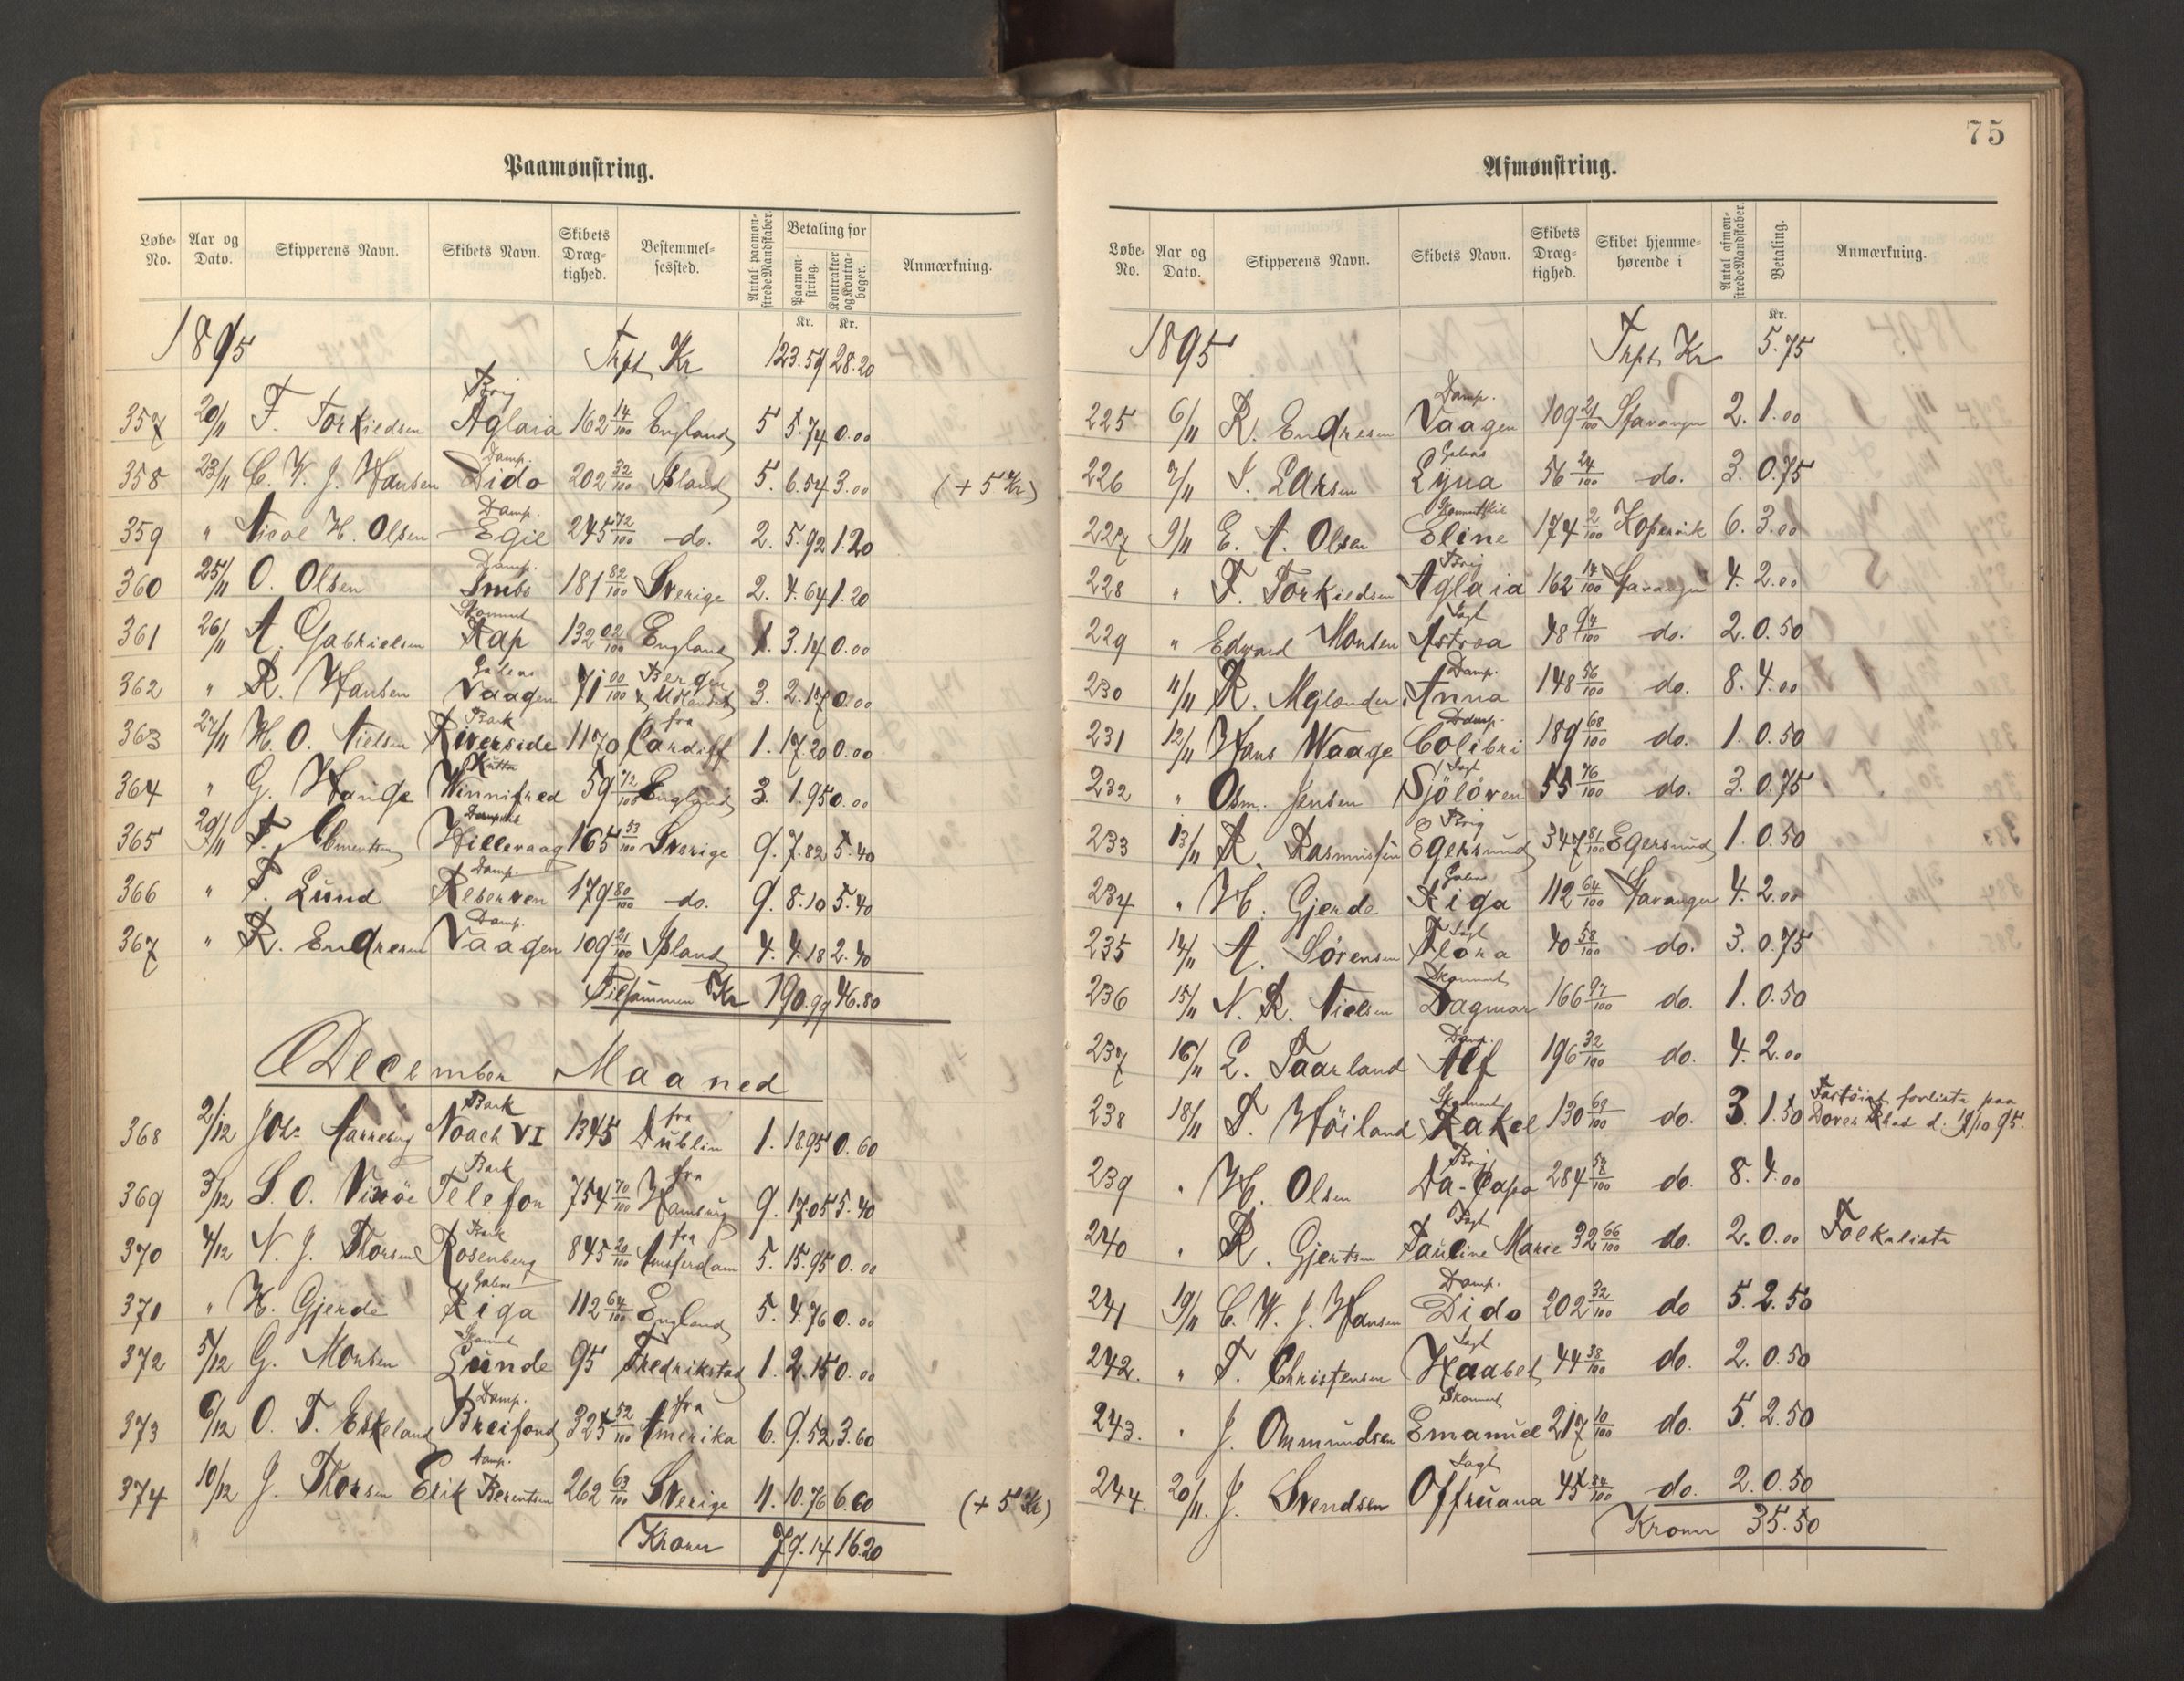 75
Paamønstring.
Løbe-No. Aar og Dato. Skipperens Navn. Skibets Navn. Skibets Dræg-tighed. Bestemmel-sessted. Antal paamøn-strede Mandskaber. Betaling for Paamøn-string. Kontrakter og Kontra-bøger. Anmærkning.
Kr. Kr.
1895 Trpt. Kr 123.59 28.20
357 20/11 F. Torkiedsen Brig Aglaia 162 14/100 England 5 5.74 0.00
358 23/11 C. W. J. Hansen Damp. Dido 202 32/100 Island 5. 6.54 3.00 (+ 5 Kr)
359 " Nicol H. Olsen Damp. Egil 245 72/100 do. 2. 5.92 1.20
360 25/11 O. Olsen Damp. Imbs 181 82/100 Sverige 2. 4.64 1.20
361 26/11 A. Gabrielsen Skonnert Rap 132 02/100 England 1. 3.14 0.00
362 " R. Hansen Galeas Vaagen 71 00/100 Bergen & Udlandet 3. 2.17 0.00
363 27/11 H. O. Nielsen Bark Riverside 1170 fra Cardiff 1. 17.20 0.00
364 " G. Hauge Kutter Winnifred 59 72/100 England 3. 1.95 0.00
365 29/11 F. Clementsen Dampsk Hillevaag 165 53/100 Sverige 9. 7.82 5.40
366 " T. Lund Damp. Reberven 179 80/100 do. 9. 8.10 5.40
367 " R. Endresen Damp. Vaagen 109 21/100 Island 4. 4.18 2.40
Tilsammen Kr 190.99 46.80
December Maaned
368 2/12 Joh. Bark Noach VI 1345 fra Dublin 1. 18.95 0.60
369 3/12 S. O. Bark Telefon 754 70/100 fra Hamburg 9. 17.05 5.40
370 4/12 N. J. Thorsen Bark Rosenberg 845 20/100 fra Amsterdam 5. 15.95 0.00
371 " H. Gjerde Galeas Riga 112 64/100 England 5. 4.76 0.00
372 5/12 G. Monsen Skonnert Gunde 95 Fredrikstad 1. 2.15 0.00
373 6/12 O. T. Eskeland Damp. Breifond 325 52/100 fra Amerika 6. 9.52 3.60
374 10/12 J. Thorsen Damp. Erik Berentsen 262 63/100 Sverige 11. 10.76 6.60 (+ 5 Kr)
Kroner 79.14 16.20
Afmønstring.
Løbe-No. Aar og Dato. Skipperens Navn. Skibets Navn. Skibets Dræg-tighed. Skibet hjemme-hørende i Antal afmøn-strede Mandskaber. Betaling. Anmærkning.
Kr.
1895 Trpt. Kr 5.75
225 6/11 R. Endresen Damp. Vaagen 109 21/100 Stavanger 2. 1.00
226 7/11 S. Larsen Galeas Lyna 56 24/100 do. 3. 0.75
227 9/11 E. A. Olsen Eline 174 2/100 Kopervik 6. 3.00
228 " F. Torkiedsen Brig Aglaia 162 14/100 Stavanger 4. 2.00
229 " Edvard Monsen Jagt Astrea 48 94/100 do. 2. 0.50
230 11/11 R. Mylander Damp. Anna 148 56/100 do. 8. 4.00
231 12/11 Hans Waage Damp. Colibri 189 68/100 do. 1. 0.50
232 " Osm. Jensen Jagt Sjöløven 55 76/100 do. 3. 0.75
233 13/11 R. Rasmussen Brig Egersund 347 81/100 Egersund 1. 0.50
234 " H. Gjerde Galeas Riga 112 64/100 Stavanger 4. 2.00
235 14/11 A. Sörensen Jagt Flora 40 58/100 do. 3. 0.75
236 15/11 N. R. Nielsen Skonnert Dagmar 166 97/100 do. 1. 0.50
237 16/11 L. Taarland Damp. Alf 196 32/100 do. 4. 2.00
238 18/11 T. Höiland Skonnert Rakel 130 69/100 do. 3. 1.50 Fartöiet forliste paa Dover d. 17/10 95.
239 " H. Olsen Brig Da-Capo 284 58/100 do. 8. 4.00
240 " R. Gjertsen Jagt Pauline Marie 32 66/100 do. 2. 0.00 Folkeliste
241 19/11 C. W. J. Hansen Damp. Dido 202 32/100 do 5. 2.50
242. " T. Christensen Jagt Haabet 44 38/100 do. 2. 0.50
243. " J. Ommundsen Skonnert Emanuel 217 10/100 do. 5. 2.50
244. 20/11 J. Svendsen Jagt Offruana 45 84/100 do. 2. 0.50
Kroner 35.50